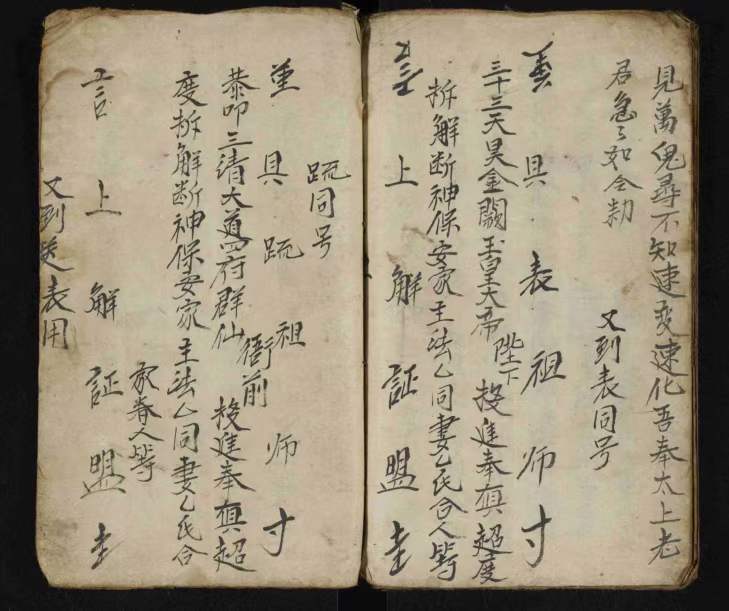 見萬鬼尋不知速変速化吾奉太上老
君急〻如令勑
又到表同号
具表祖师寸
三十三天昊金闕玉皇大帝陛下投進奉聞超度
拆解断神保安家主法厶同妻厶氏合人等
言上解証盟圭
疏同号
具疏祖师寸
恭叩三清大道四府群仙衙前投進奉聞超
度拆解断神保安家主法厶同妻厶氏合
家眷人等
言上解証盟圭
又到表用